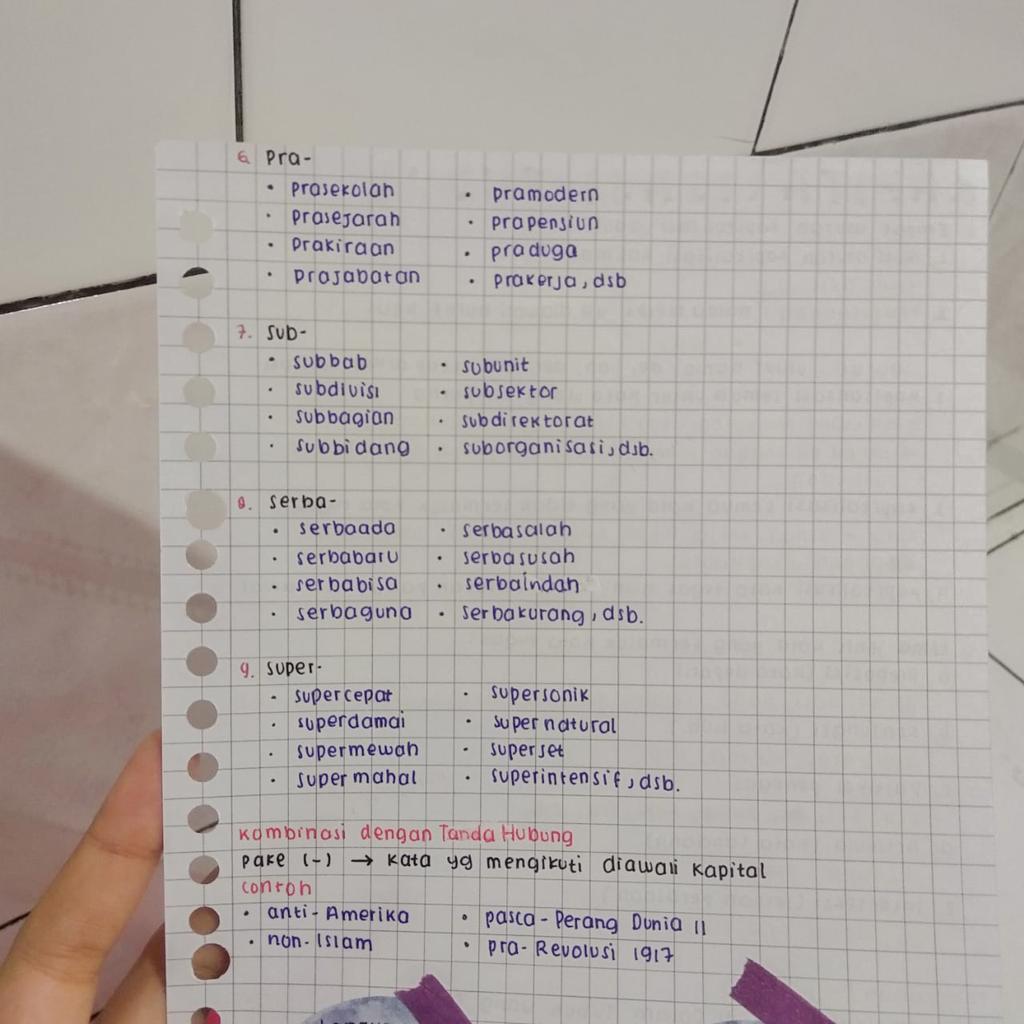 6. pra-
• prasekolah • pramodern
• prasejarah • prapensiun
• prakiraan • praduga
• prajabatan • prakerja, dsb
7. sub-
• subbab • subunit
• subdivisi • subsektor
• subbagian • subdirektorat
• subbidang • suborganisasi, dsb.
8. serba-
• serbaada • serbasalah
• serbabaru • serbasusah
• serbabisa • serbaindah
• serbaguna • serbakurang, dsb.
9. super-
• supercepat • supersonik
• superdamai • supernatural
• supermewah • superset
• supermahal • superintensif, dsb.
Kombinasi dengan Tanda Hubung
pake (-) → kata yg mengikuti diawali kapital
contoh
• anti-Amerika • pasca-Perang Dunia II
• non-Islam • pra-Revolusi 1917